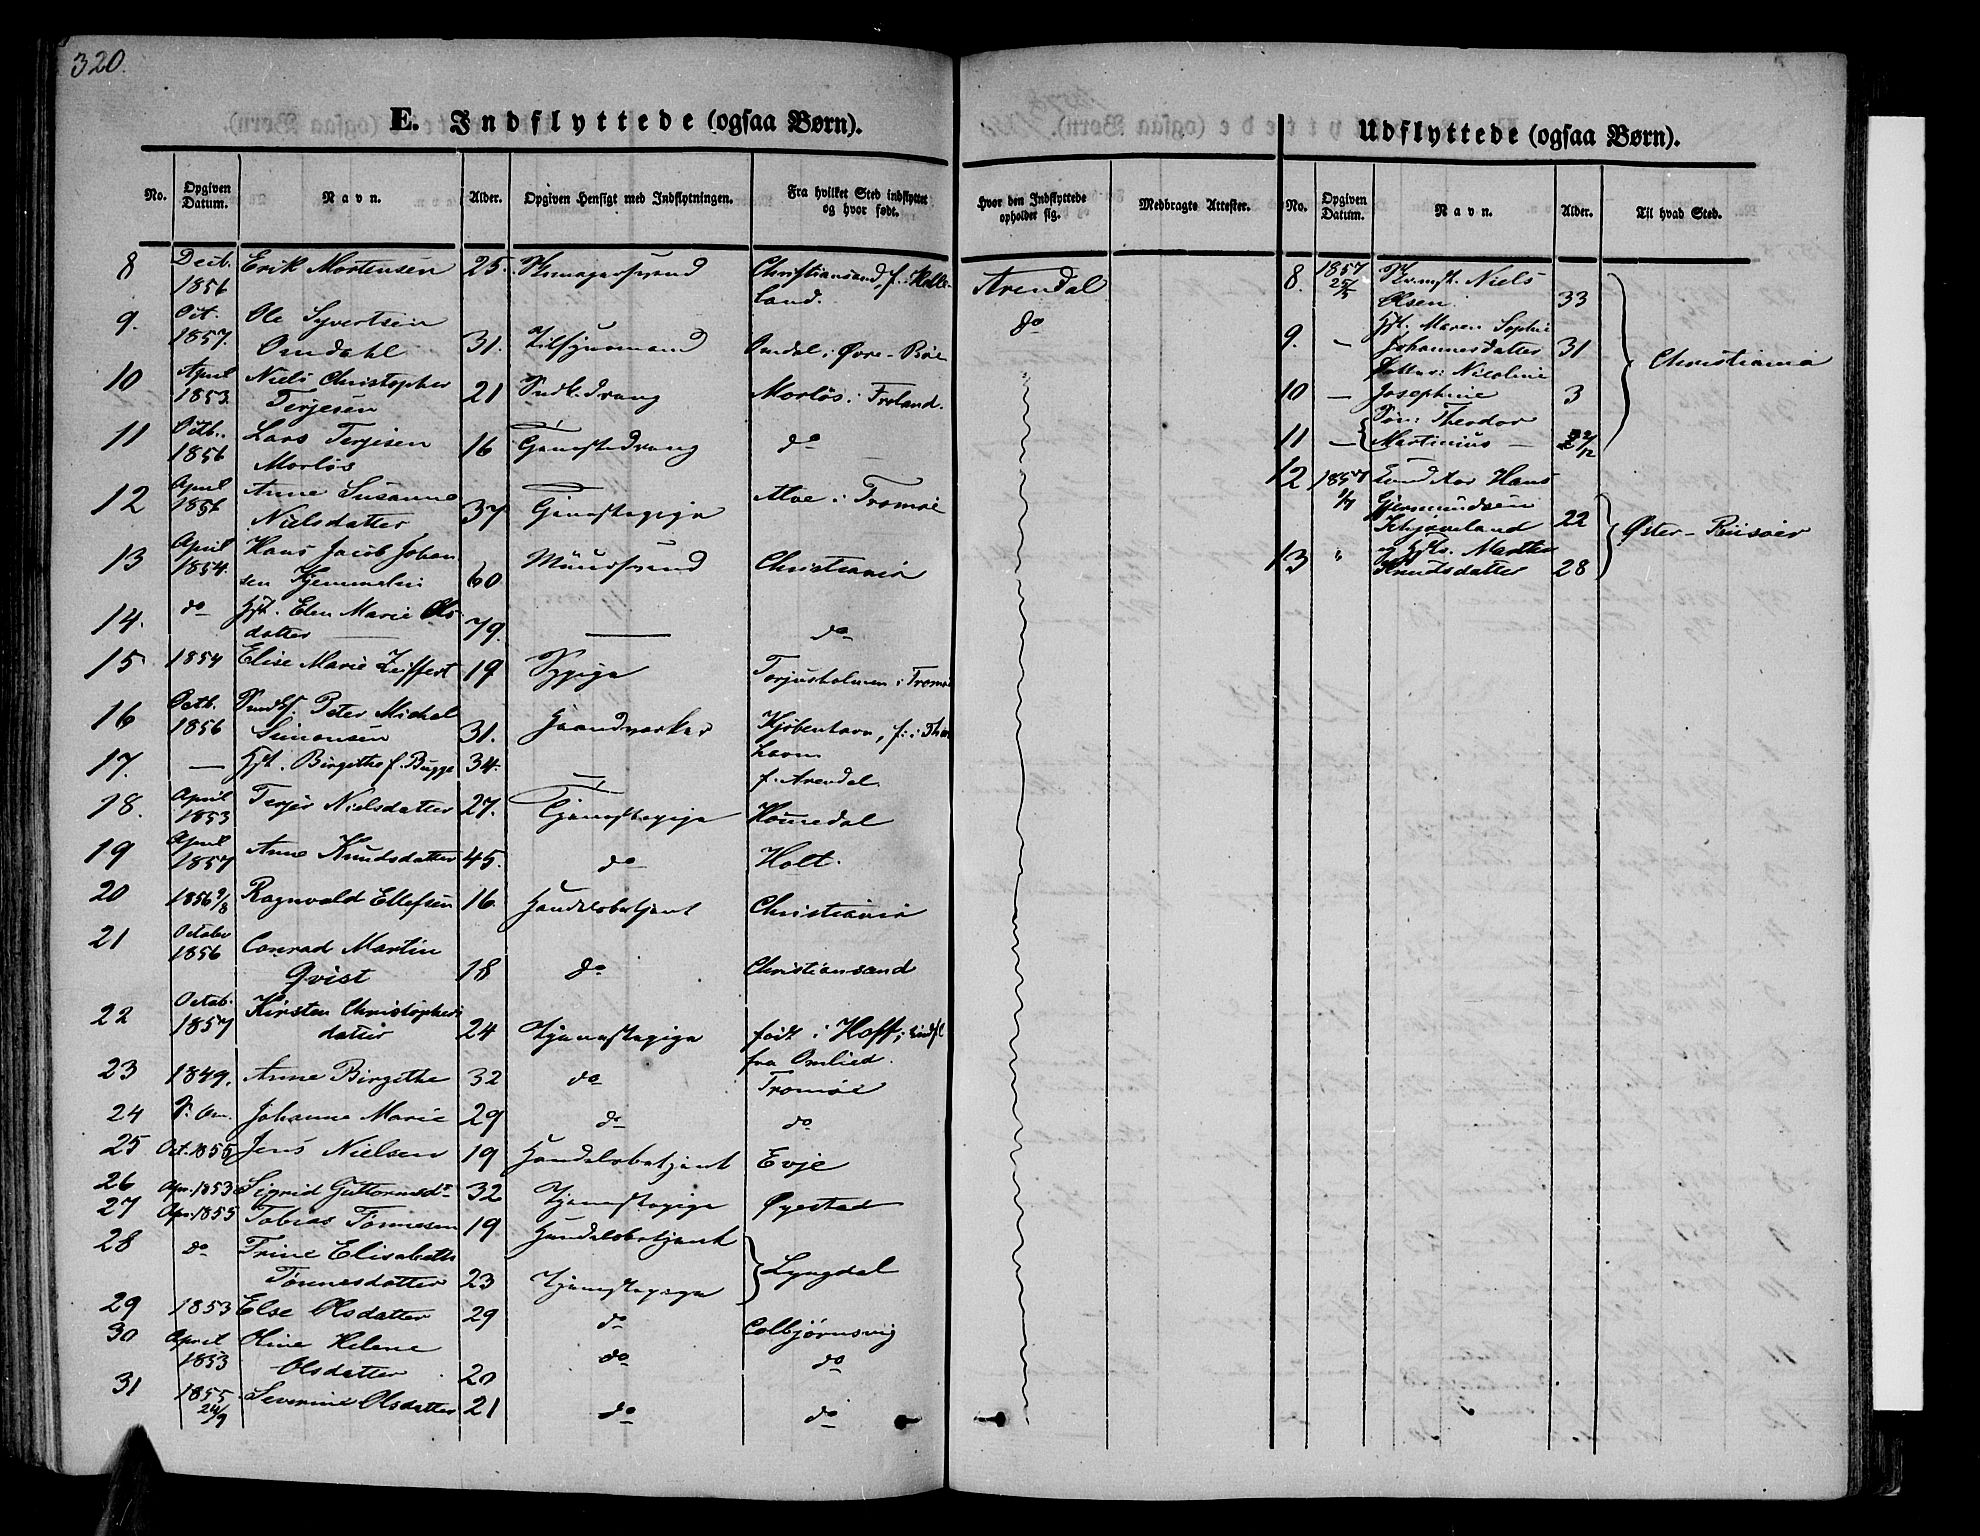 320.
E. Indflyttede (ogsaa Børn).
No. Opgiven Datum. Navn. Alder. Opgiven Hensigt med Indflytningen. Fra hvilket Sted indflyttet og hvor født.
8 Decb. 1856 Erik Mortensen 25. Christiansand, f. i Halle-
land.
9. Oct. 1857. Ole Syvertsen
Omdahl 31. Omdal i Øvre-
10 April 1853. Niels Christopher
Terjesen 21 Morløs i Froland.
11 Octb. 1856 Lars Terjesen
Morløs 16 Tjenestedreng do
12 April 1856 Anne Susanne
Nielsdatter 37 Tjenestepige Alve i Tromøe
13 April 1854. Hans Jacob Johan-
sen 60 Christiania
14. do Hst. Elen Marie Ols-
datter 79. do
15 1854 Elise Marie Zeiffert 19 Sypige Torjusholmen i Tromøe
16 Octb. 1856 Peter Michal
Simonsen 31. Haandverker Kjøbenhavn, f. i Thors-
havn
17. — Hst. Birgithe f. Bugge 34. f. Arendal
18. April 1853 Terjer Nielsdatter 27. Tjenestepige Hommedal
19 April 1857 Anne Knudsdatter 45. do Holt.
20 1856 9/8 Ragnvald Ellefsen 16 Handelsbetjent Christiania
21 October 1856 Conrad Martin
Qvist 18 do Christiansand
22 Octob. 1857 Kirsten Christophers-
datter 24 Tjenestepige født i Hoff, indfl.
fra Omlied.
23 1849. Anne Birgithe 32 do Tromøe
24 Johanne Marie 29 do do
25 Oct. 1855 Jens Nielsen 19 Handelsbetjent Evje
26 Apr. 1853 Sigrid Guttormsdr 32 Tjenestepige Øyestad
27 Apr. 1855 Tobias Tønnesen 19 Handelsbetjent
28 do Trine Elisabeth
Tønnesdatter 23 Tjenestepige Lyngdal
29 1853 Else Olsdatter 29 do Colbjørnsvig
30 April 1853 Oline Helene
Olsdatter 20 do do
31 1855 24/9 Severine Olsdatter 21 do do
Hvor den Indflyttede opholder sig. Medbragte Attester.
Arendal
do
Udflyttede (ogsaa Børn).
No. Opgiven Datum. Navn. Alder. Til hvad Sted.
8. 1857 25/5 Niels
Olsen 33
9. — Hst. Maren Sophie
Johannesdatter 31 Christiania
10 — Datter: Nicoline
Josephine 3
11 — Søn: Theodor
Martinius —
12 1857 Hans
Gjermundsen
22 Øster-Riisøer
13 " og Marthe
Knudsdatter 28